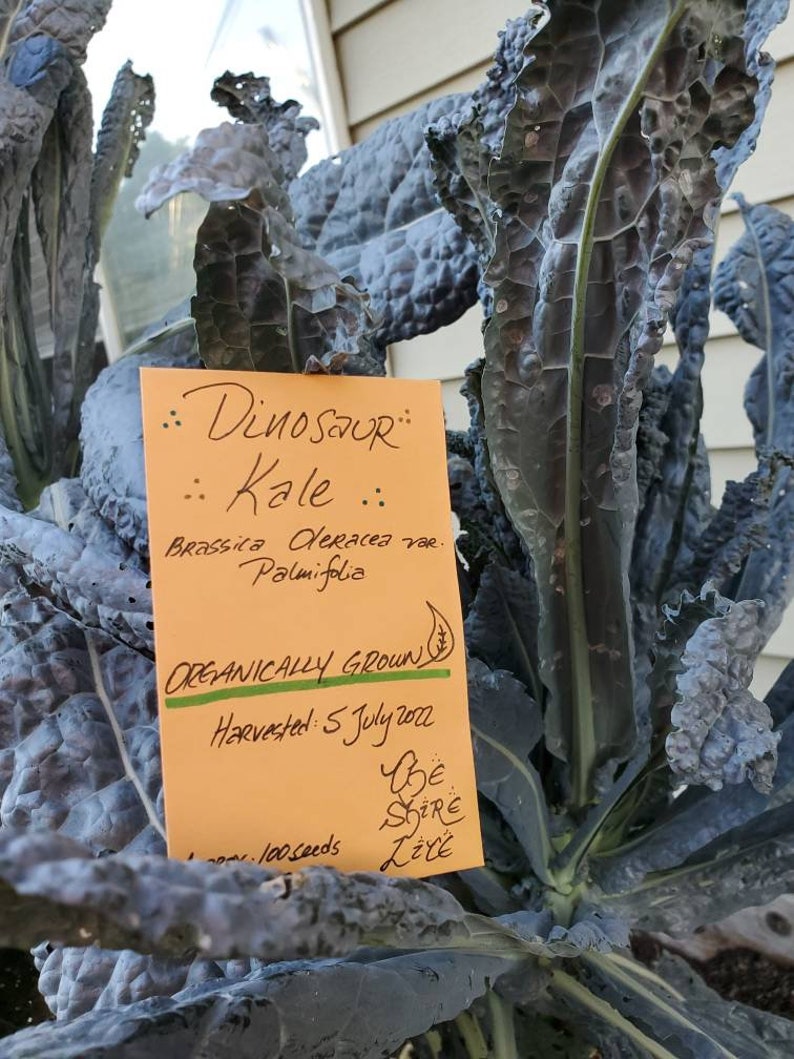 Dinosaur
Kale
Brassica Oleracea var.
Palmifolia
ORGANICALLY GROWN
Harvested: 5 July 2022
The
Shire
Life
Approx. 100 seeds